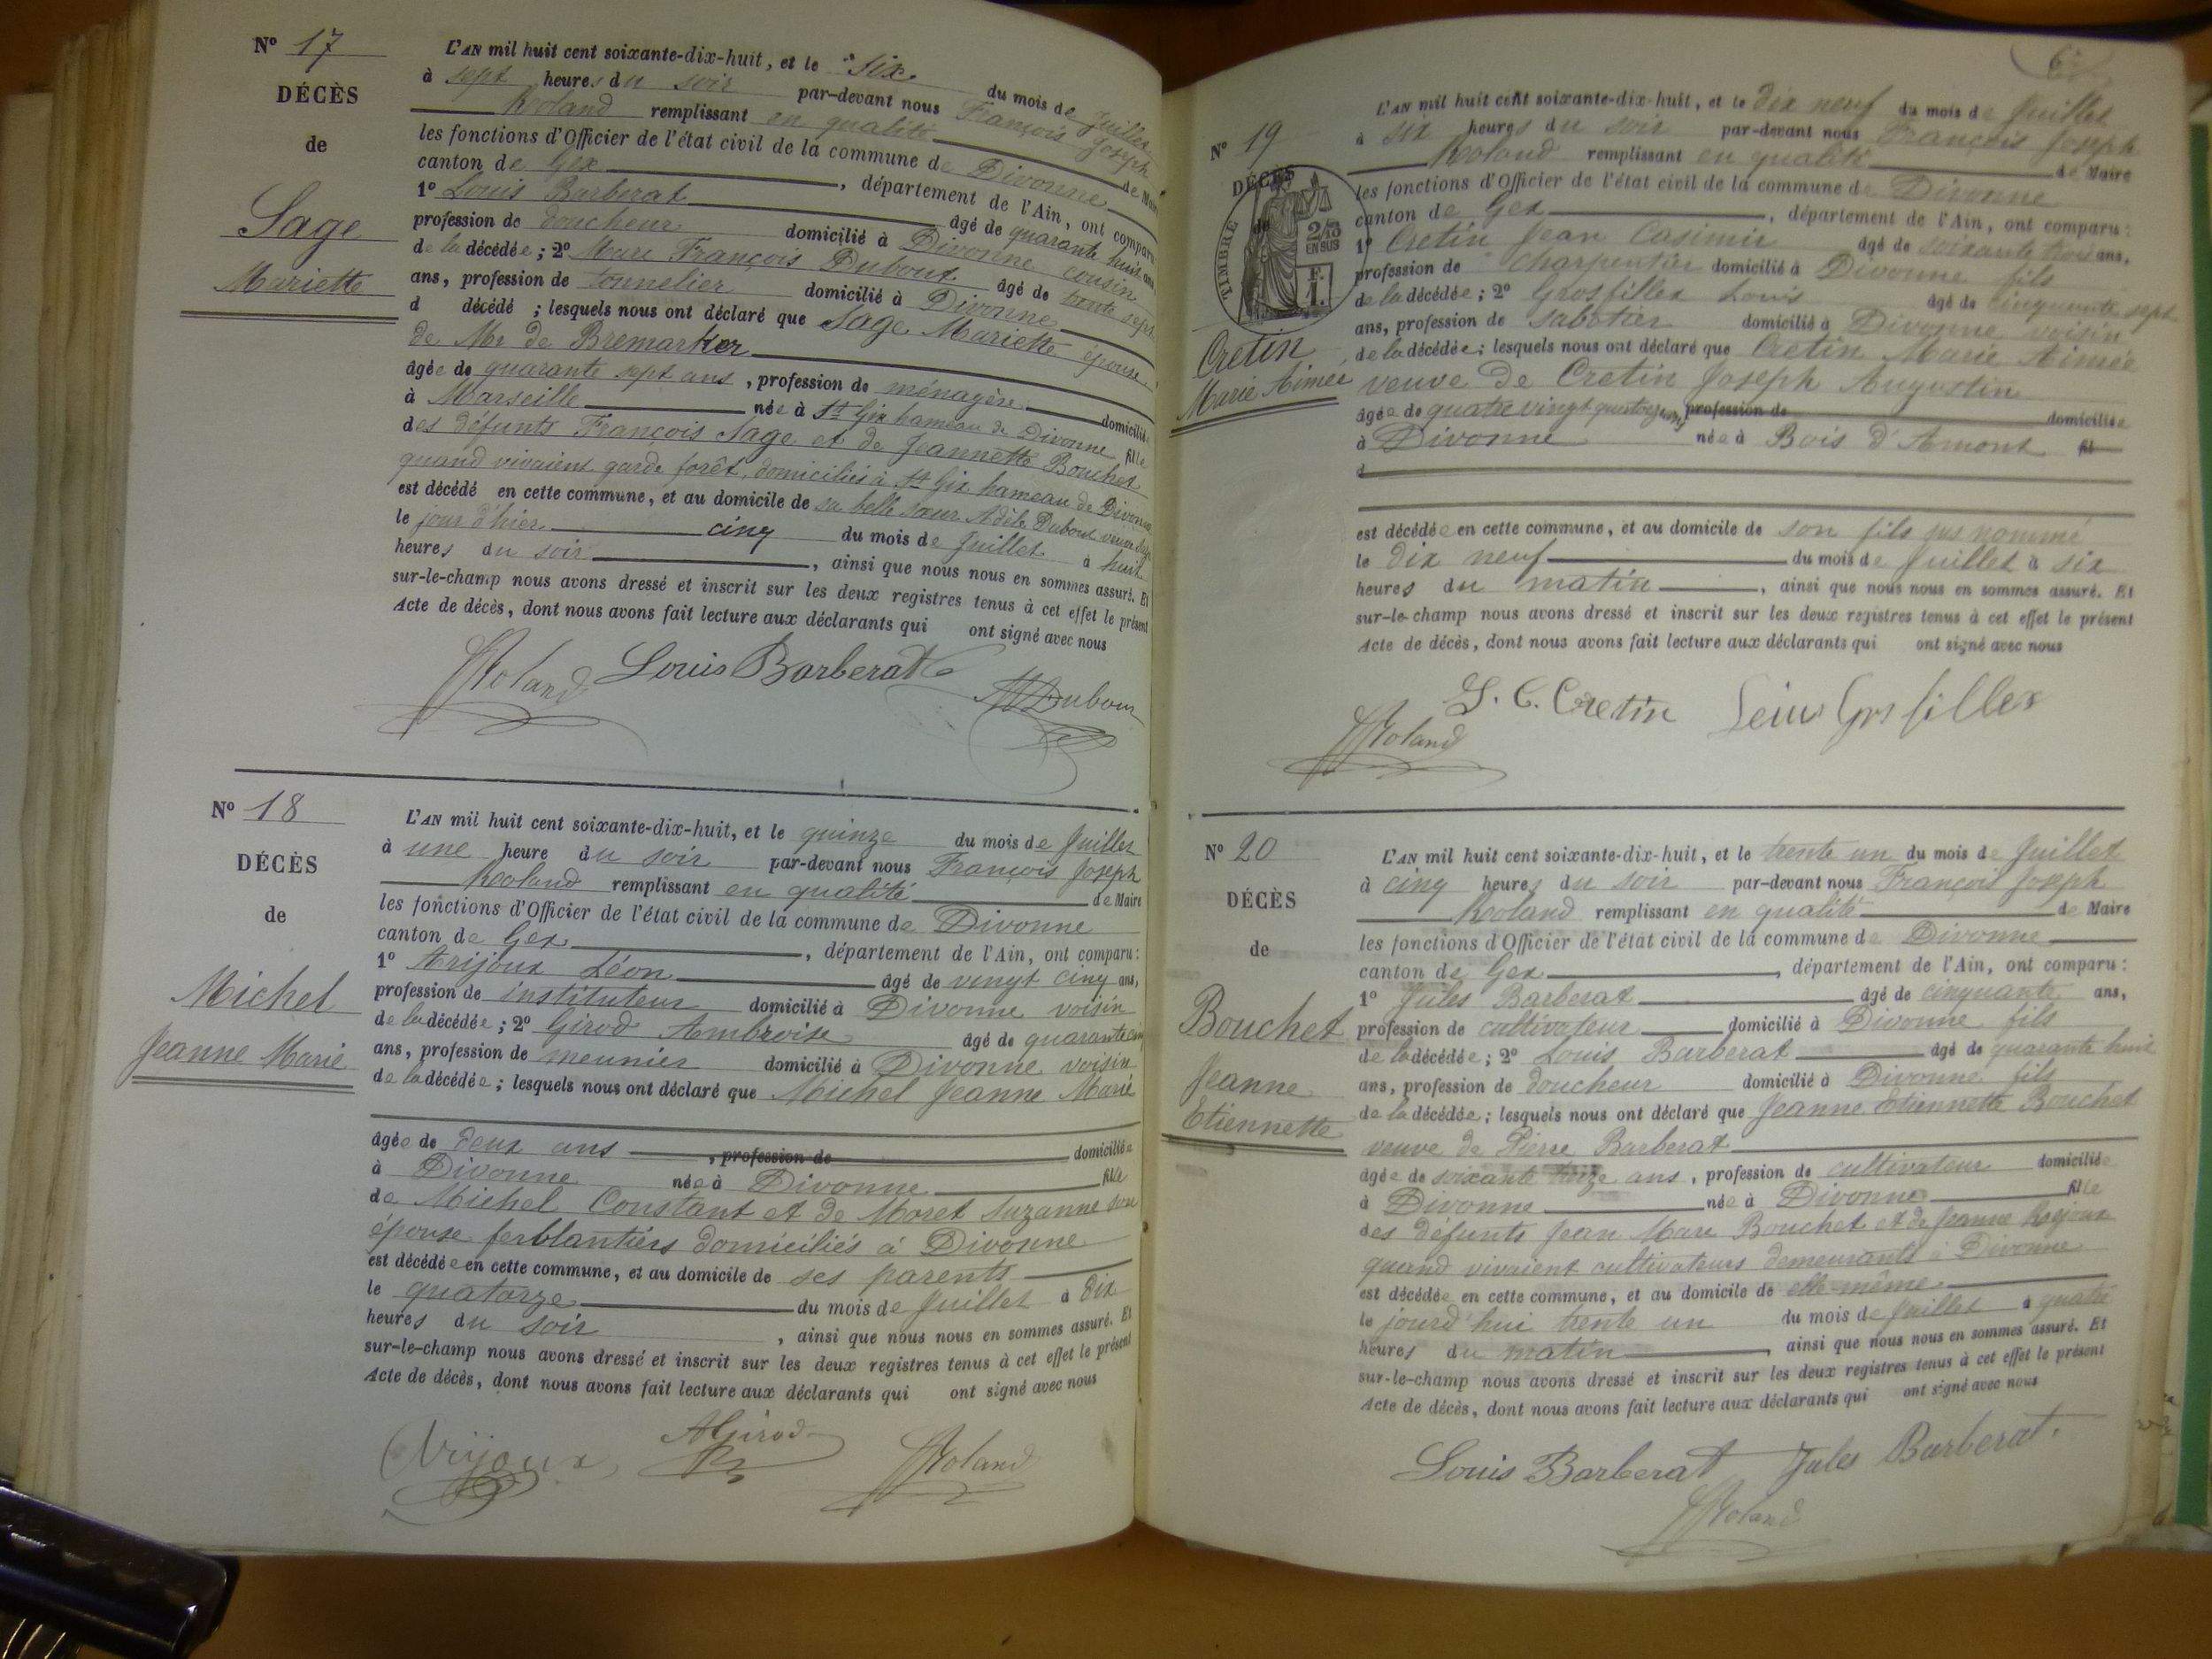 N° 17
DÉCÈS
de
Sage
Mariette
L'AN mil huit cent soixante-dix-huit, et le six du mois de Juillet
à sept heures du soir par-devant nous François Joseph
Roland remplissant en qualité de Maire
les fonctions d'Officier de l'état civil de la commune de Divonne
canton de Gex, département de l'Ain, ont comparu
1° Louis Barberat âgé de quarante huit ans
profession de doucheur domicilié à Divonne cousin
de la décédée; 2° Marc François Dubout âgé de trente sept
ans, profession de tonnelier domicilié à Divonne
d décédé ; lesquels nous ont déclaré que Sage Mariette épouse
de Mr de Bremarker
âgée de quarante sept ans, profession de ménagère domiciliée
à Marseille née à St Gix hameau de Divonne fille
des défunts François Sage et de Jeannette Bouchet
quand vivaient garde forêt, domiciliés à St Gix hameau de Divonne
est décédé en cette commune, et au domicile de sa belle sœur Adèle Dubout veuve Sage
le jour d'hier cinq du mois de Juillet à huit
heures du soir, ainsi que nous nous en sommes assuré. Et
sur-le-champ nous avons dressé et inscrit sur les deux registres tenus à cet effet le présent
Acte de décès, dont nous avons fait lecture aux déclarants qui ont signé avec nous
Roland Louis Barberat Dubout
N° 18
DÉCÈS
de
Michel
Jeanne Marie
L'AN mil huit cent soixante-dix-huit, et le quinze du mois de Juillet
à une heure du soir par-devant nous François Joseph
Roland remplissant en qualité de Maire
les fonctions d'Officier de l'état civil de la commune de Divonne
canton de Gex, département de l'Ain, ont comparu:
1° Arijoux Léon âgé de vingt cinq ans,
profession de instituteur domicilié à Divonne voisin
de la décédée; 2° Girod Ambroise âgé de quarante cinq
ans, profession de meunier domicilié à Divonne voisin
de la décédée; lesquels nous ont déclaré que Michel Jeanne Marie
âgée de deux ans, profession de domiciliée
à Divonne née à Divonne fille
de Michel Constant et de Moret Suzanne son
épouse ferblantiers domiciliés à Divonne
est décédée en cette commune, et au domicile de ses parents
le quatorze du mois de Juillet à dix
heures du soir, ainsi que nous nous en sommes assuré. Et
sur-le-champ nous avons dressé et inscrit sur les deux registres tenus à cet effet le présent
Acte de décès, dont nous avons fait lecture aux déclarants qui ont signé avec nous
Arijoux AGirod Roland
N° 19
DÉCÈS
de
TIMBRE
2/10
EN SUS
F.
1.
Cretin
Marie Aimée
L'AN mil huit cent soixante-dix-huit, et le dix neuf du mois de Juillet
à six heures du soir par-devant nous François Joseph
Roland remplissant en qualité de Maire
les fonctions d'Officier de l'état civil de la commune de Divonne
canton de Gex, département de l'Ain, ont comparu:
1° Cretin Jean Casimir âgé de soixante trois ans,
profession de charpentier domicilié à Divonne fils
de la décédée; 2° Grosfillex Louis âgé de cinquante sept
ans, profession de sabotier domicilié à Divonne voisin
de la décédée; lesquels nous ont déclaré que Cretin Marie Aimée
veuve de Cretin Joseph Augustin
âgée de quatre vingt quatorze ans, profession de domiciliée
à Divonne née à Bois d'Amont fil
d
est décédée en cette commune, et au domicile de son fils sus nommé
le dix neuf du mois de Juillet à six
heures du matin, ainsi que nous nous en sommes assuré. Et
sur-le-champ nous avons dressé et inscrit sur les deux registres tenus à cet effet le présent
Acte de décès, dont nous avons fait lecture aux déclarants qui ont signé avec nous
J. C. Cretin Leius Grsfillex
Roland
N° 20
DÉCÈS
de
Bouchet
Jeanne
Etiennette
L'AN mil huit cent soixante-dix-huit, et le trente un du mois de Juillet
à cinq heures du soir par-devant nous François Joseph
Roland remplissant en qualité de Maire
les fonctions d'Officier de l'état civil de la commune de Divonne
canton de Gex, département de l'Ain, ont comparu:
1° Jules Barberat âgé de cinquante ans,
profession de cultivateur domicilié à Divonne fils
de la décédée; 2° Louis Barberat âgé de quarante huit
ans, profession de doucheur domicilié à Divonne fils
de la décédée; lesquels nous ont déclaré que Jeanne Etiennette Bouchet
veuve de Pierre Barberat
âgée de soixante treize ans, profession de cultivateur domiciliée
à Divonne née à Divonne fille
des défunts Jean Marc Bouchet et de Jeanne
quand vivaient cultivateurs demeurants à Divonne
est décédée en cette commune, et au domicile de elle-même
le jourd'hui trente un du mois de Juillet à quatre
heures du matin, ainsi que nous nous en sommes assuré. Et
sur-le-champ nous avons dressé et inscrit sur les deux registres tenus à cet effet le présent
Acte de décès, dont nous avons fait lecture aux déclarants qui ont signé avec nous
Louis Barberat Jules Barberat.
Roland